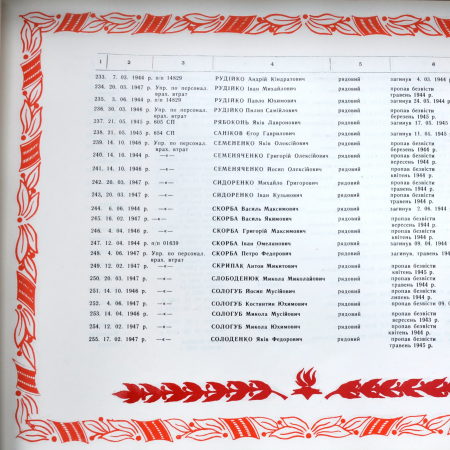 1 2 3 4 5 6
233. 7. 03. 1944 р. п/п 14829 РУДІЙКО Андрій Кіндратович рядовий загинув 4. 03. 1944
234. 20. 05. 1947 р. Упр. по персонал. РУДІЙКО Іван Михайлович рядовий пропав безвісти
врах. втрат травень 1944 р.
235. 5. 06. 1944 р. п/п 14829 РУДІЙКО Павло Юхимович рядовий загинув 24. 05. 1944
236. 30. 05. 1946 р. Упр. по персонал. РУДІЙКО Пилип Самійлович рядовий пропав безвісти
врах. втрат березень 1944 р.
237. 21. 05. 1945 р. 605 СП РЯБОКОНЬ Яків Лавронович рядовий загинув 17. 05. 1945
238. 21. 05. 1945 р. 654 СП САНІКОВ Єгор Гаврилович рядовий загинув 11. 05. 1945
239. 14. 10. 1946 р. Упр. по персонал. СЕМЕНЕНКО Яків Олексійович рядовий пропав безвісти
врах. втрат березень 1944 р.
240. 14. 10. 1944 р. —«— СЕМЕНЯЧЕНКО Григорій Олексійович рядовий пропав безвісти
вересень 1944 р.
241. 14. 10. 1946 р. —«— СЕМЕНЯЧЕНКО Йосип Олексійович рядовий пропав безвісти
квітень 1944 р.
242. 26. 03. 1947 р. —«— СИДОРЕНКО Михайло Григорович рядовий пропав безвісти
243. 20. 03. 1947 р. —«— СИДОРЕНКО Іван Кузьмович рядовий пропав безвісти
травень 1944 р.
244. 6. 06. 1944 р. —«— СКОРБА Василь Максимович рядовий загинув 2. 06. 1944
245. 16. 02. 1947 р. —«— СКОРБА Василь Якимович рядовий пропав безвісти
вересень 1944 р.
246. 4. 04. 1946 р. —«— СКОРБА Григорій Максимович рядовий пропав безвісти
квітень 1944 р.
247. 12. 04. 1944 р. п/п 01639 СКОРБА Іван Омелянович рядовий загинув 09. 04. 1944
248. 4. 06. 1947 р. Упр. по персонал. СКОРБА Петро Федорович рядовий загинув, травень 1944
врах. втрат
249. 12. 02. 1947 р. —«— СКРИПАК Антон Микитович рядовий пропав безвісти
квітень 1945 р.
250. 20. 03. 1947 р. —«— СЛОБОДЕНЮК Микола Миколайович рядовий пропав безвісти
травень 1944 р.
251. 14. 10. 1946 р. —«— СОЛОГУБ Йосип Мусійович рядовий пропав безвісти
липень 1944 р.
252. 4. 06. 1947 р. —«— СОЛОГУБ Костянтин Юхимович рядовий пропав безвісти 09.
253. 14. 04. 1946 р. —«— СОЛОГУБ Микола Мусійович рядовий пропав безвісти
вересень 1943 р.
254. 12. 02. 1947 р. —«— СОЛОГУБ Микола Юхимович рядовий пропав безвісти
квітень 1944 р.
255. 17. 02. 1947 р. —«— СОЛОДЕНКО Яків Федорович рядовий пропав безвісти
травень 1945 р.